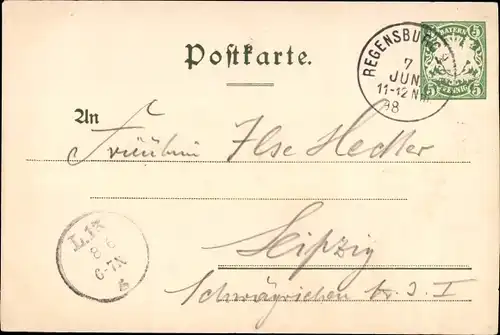 BAYERN
5 5
PFENNIG
REGENSBURG
7
JUN
11-12 NM
98
Postkarte.
An
Fräulein Ilse Hedler
Leipzig
Schwägrichen str. 3. I
L.13
8 6
6-7N